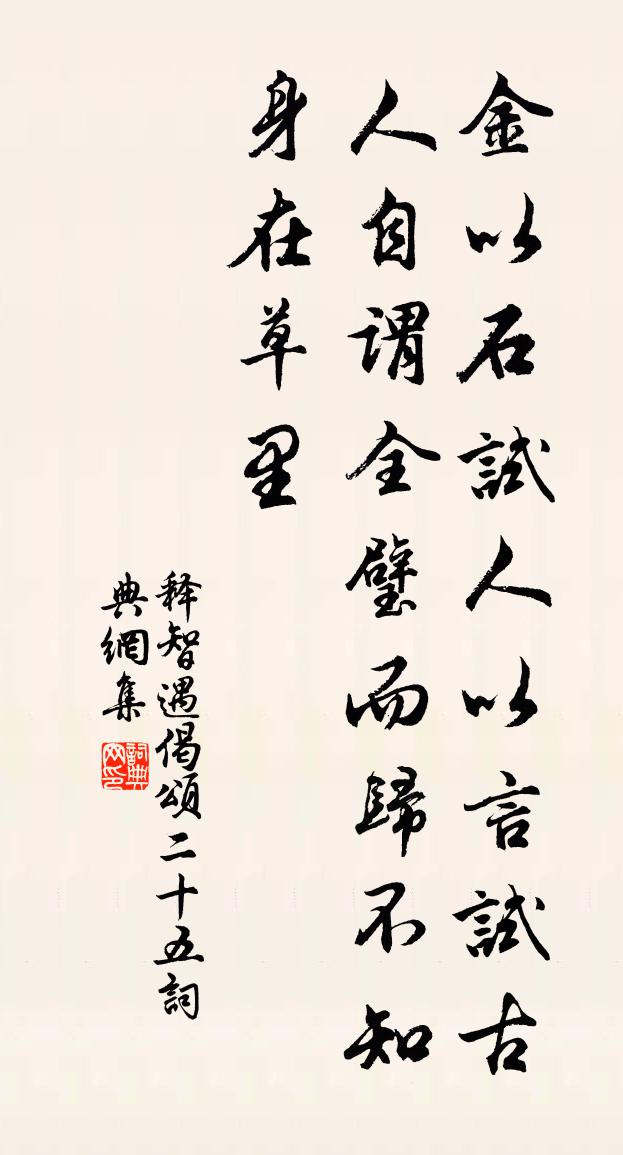 金以石試人以言試古
人自謂全璧而歸不知
身在草里
释智遇偈頌二十五詞
典網集
詞典网印